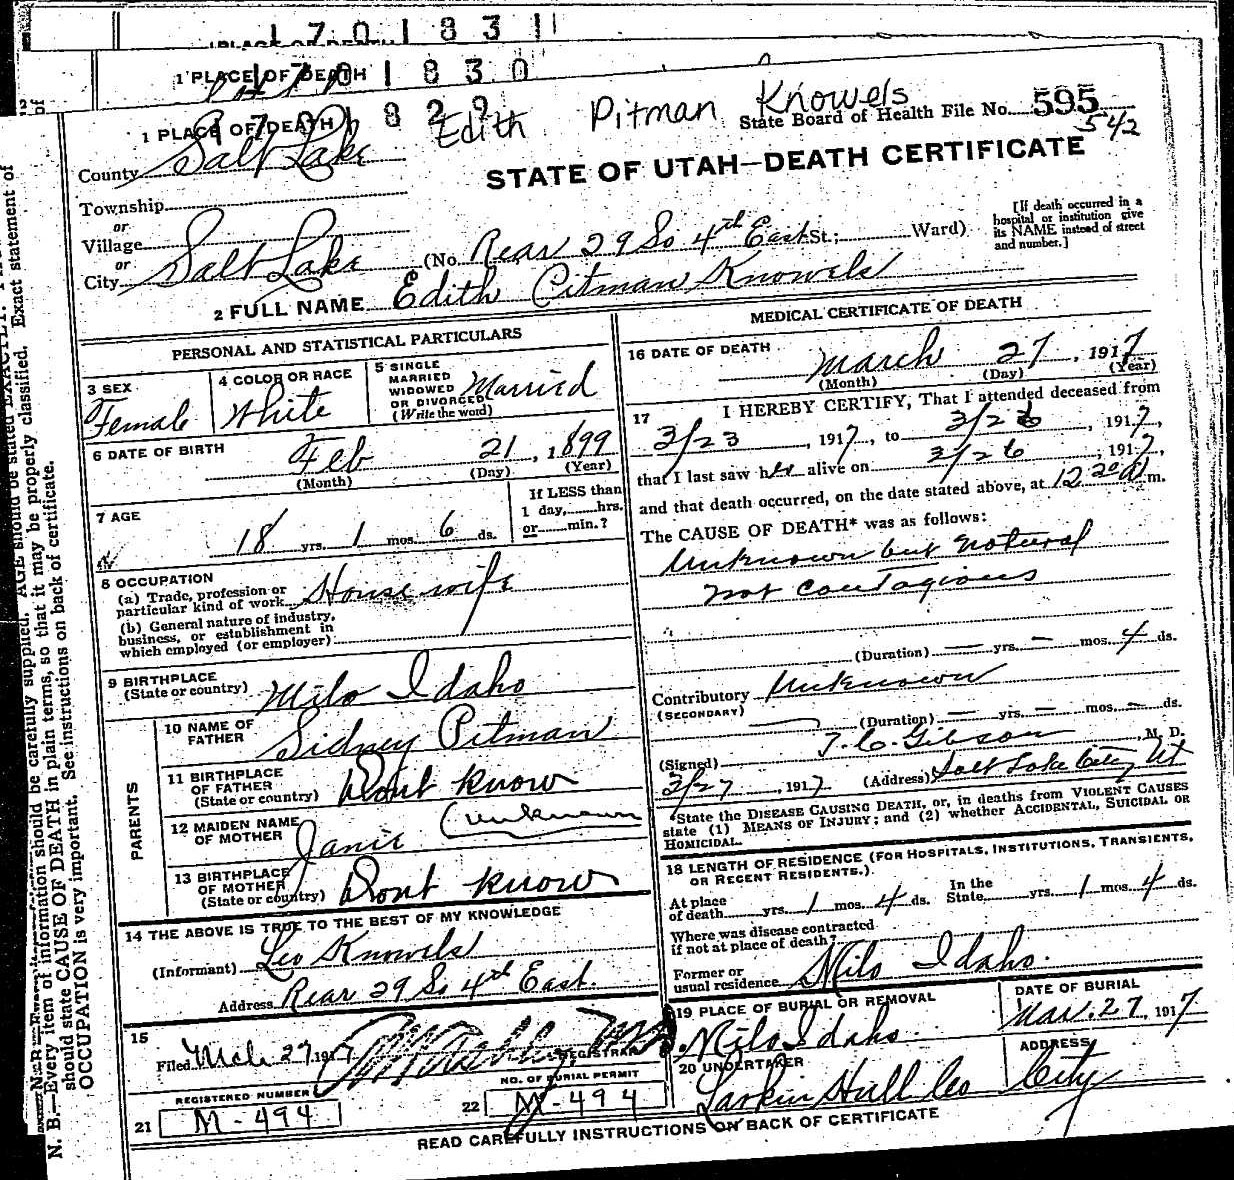 1 7 0 1 8 3 1
1 PLACE OF DEATH
1 7 0 1 8 3 0
1 PLACE OF DEATH
1 7 0 1 8 2 9
Edith Pitman Knowels
State Board of Health File No. 595
542
County Salt Lake
STATE OF UTAH—DEATH CERTIFICATE
Township
or
Village
or
City Salt Lake (No. Rear 29 So 4th East St.; Ward)
[If death occurred in a
hospital or institution give
its NAME instead of street
and number.]
2 FULL NAME Edith Pitman Knowels
PERSONAL AND STATISTICAL PARTICULARS
3 SEX
Female
4 COLOR OR RACE
White
5 SINGLE
MARRIED
WIDOWED
OR DIVORCED
(Write the word)
Married
6 DATE OF BIRTH
Feb 21, 1899
(Month) (Day) (Year)
7 AGE
18 yrs. 1 mos. 6 ds.
If LESS than
1 day, hrs.
or min.?
8 OCCUPATION
(a) Trade, profession or
particular kind of work Housewife
(b) General nature of industry,
business, or establishment in
which employed (or employer)
9 BIRTHPLACE
(State or country) Milo Idaho
PARENTS
10 NAME OF
FATHER Sidney Pitman
11 BIRTHPLACE
OF FATHER
(State or country) Dont know
12 MAIDEN NAME
OF MOTHER Janie (unknown
13 BIRTHPLACE
OF MOTHER
(State or country) Dont know
14 THE ABOVE IS TRUE TO THE BEST OF MY KNOWLEDGE
(Informant) Leo Knowels
Address Rear 29 So 4th East.
15
Filed Mch 27 1917
REGISTRAR
REGISTERED NUMBER
21 M-494
NO. OF BURIAL PERMIT
22 M-494
MEDICAL CERTIFICATE OF DEATH
16 DATE OF DEATH
March 27, 1917
(Month) (Day) (Year)
17 I HEREBY CERTIFY, That I attended deceased from
3/23, 1917, to 3/26, 1917,
that I last saw her alive on 3/26, 1917,
and that death occurred, on the date stated above, at 12 20 a m.
The CAUSE OF DEATH* was as follows:
Unknown but natural
not contagious
(Duration) — yrs. — mos. 4 ds.
Contributory Unknown
(SECONDARY)
(Duration) — yrs. — mos. — ds.
(Signed) T. C. Gibson M. D.
3/27, 1917 (Address) Salt Lake City Ut
*State the DISEASE CAUSING DEATH, or, in deaths from VIOLENT CAUSES
state (1) MEANS OF INJURY; and (2) whether ACCIDENTAL, SUICIDAL OR
HOMICIDAL.
18 LENGTH OF RESIDENCE (FOR HOSPITALS, INSTITUTIONS, TRANSIENTS,
OR RECENT RESIDENTS.)
At place
of death yrs. 1 mos. 4 ds. In the
State yrs. 1 mos. 4 ds.
Where was disease contracted
if not at place of death?
Former or
usual residence Milo Idaho.
19 PLACE OF BURIAL OR REMOVAL
Milo Idaho.
DATE OF BURIAL
Mar. 27, 1917
20 UNDERTAKER
Larkin Hull Co
ADDRESS
City
READ CAREFULLY INSTRUCTIONS ON BACK OF CERTIFICATE
N. B.—Every item of information should be carefully supplied. AGE should be stated EXACTLY.
should state CAUSE OF DEATH in plain terms, so that it may be properly classified. Exact statement of
OCCUPATION is very important. See instructions on back of certificate.